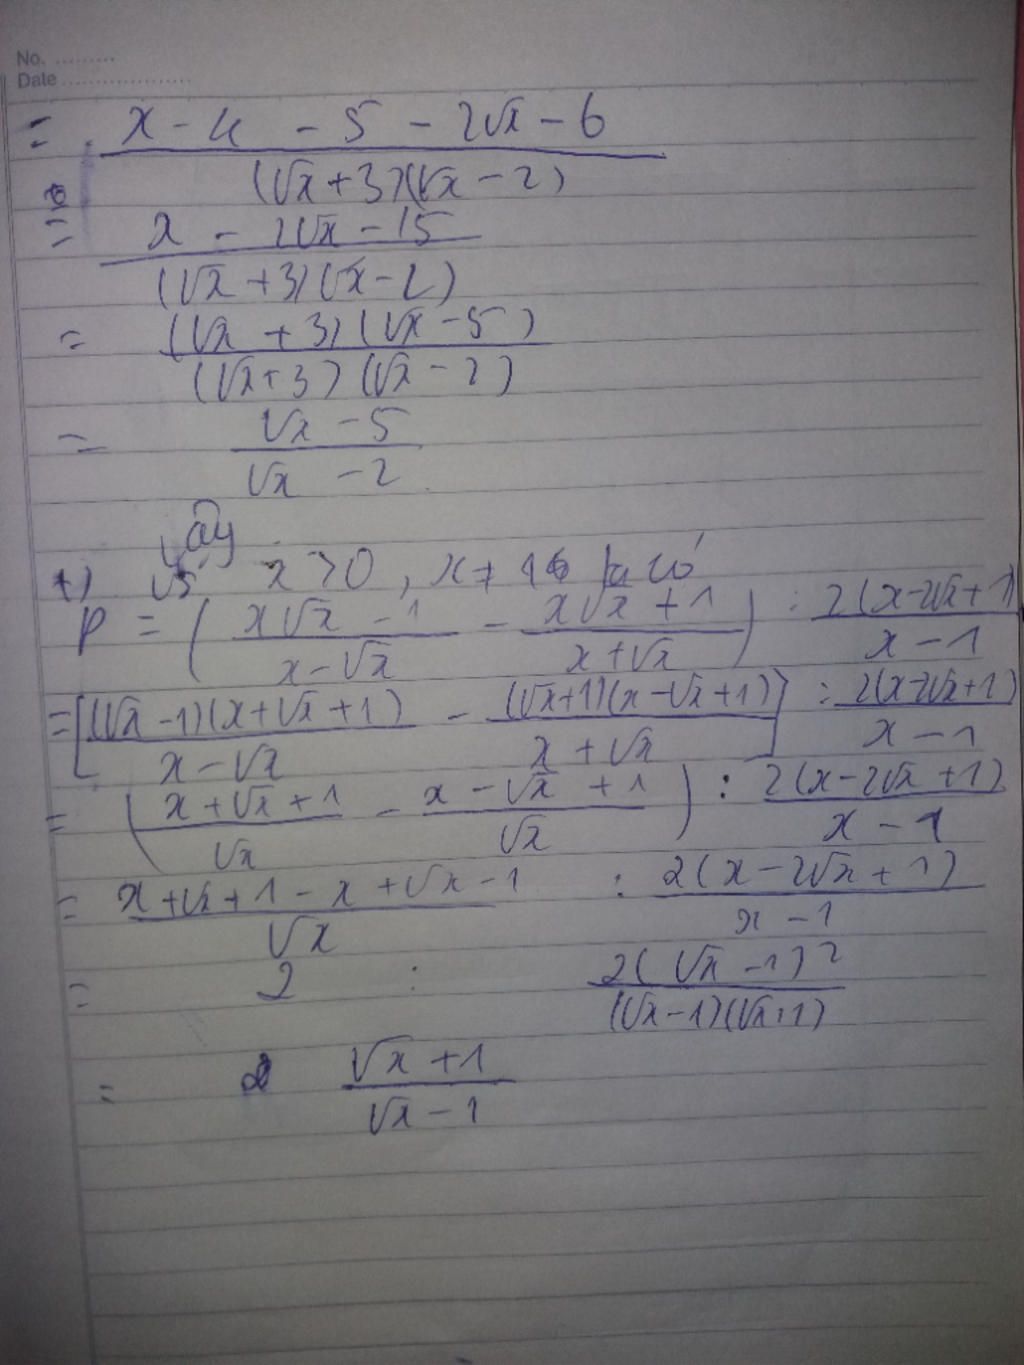 No. .........
Date ...................
= (x - 4 - 5 - 2√x - 6) / ((√x + 3)(√x - 2))
= (x - 2√x - 15) / ((√x + 3)(√x - 2))
= ((√x + 3)(√x - 5)) / ((√x + 3)(√x - 2))
= (√x - 5) / (√x - 2)
Vậy
+) Với x > 0, x ≠ 1 ta có
P = ((x√x - 1) / (x - √x) - (x√x + 1) / (x + √x)) : 2(x - 2√x + 1) / (x - 1)
= [(√x - 1)(x + √x + 1) / (x - √x) - (√x + 1)(x - √x + 1) / (x + √x)] : 2(x - 2√x + 1) / (x - 1)
= ((x + √x + 1) / √x - (x - √x + 1) / √x) : 2(x - 2√x + 1) / (x - 1)
= (x + √x + 1 - x + √x - 1) / √x : 2(x - 2√x + 1) / (x - 1)
= 2 : 2(√x - 1)² / ((√x - 1)(√x + 1))
= (√x + 1) / (√x - 1)